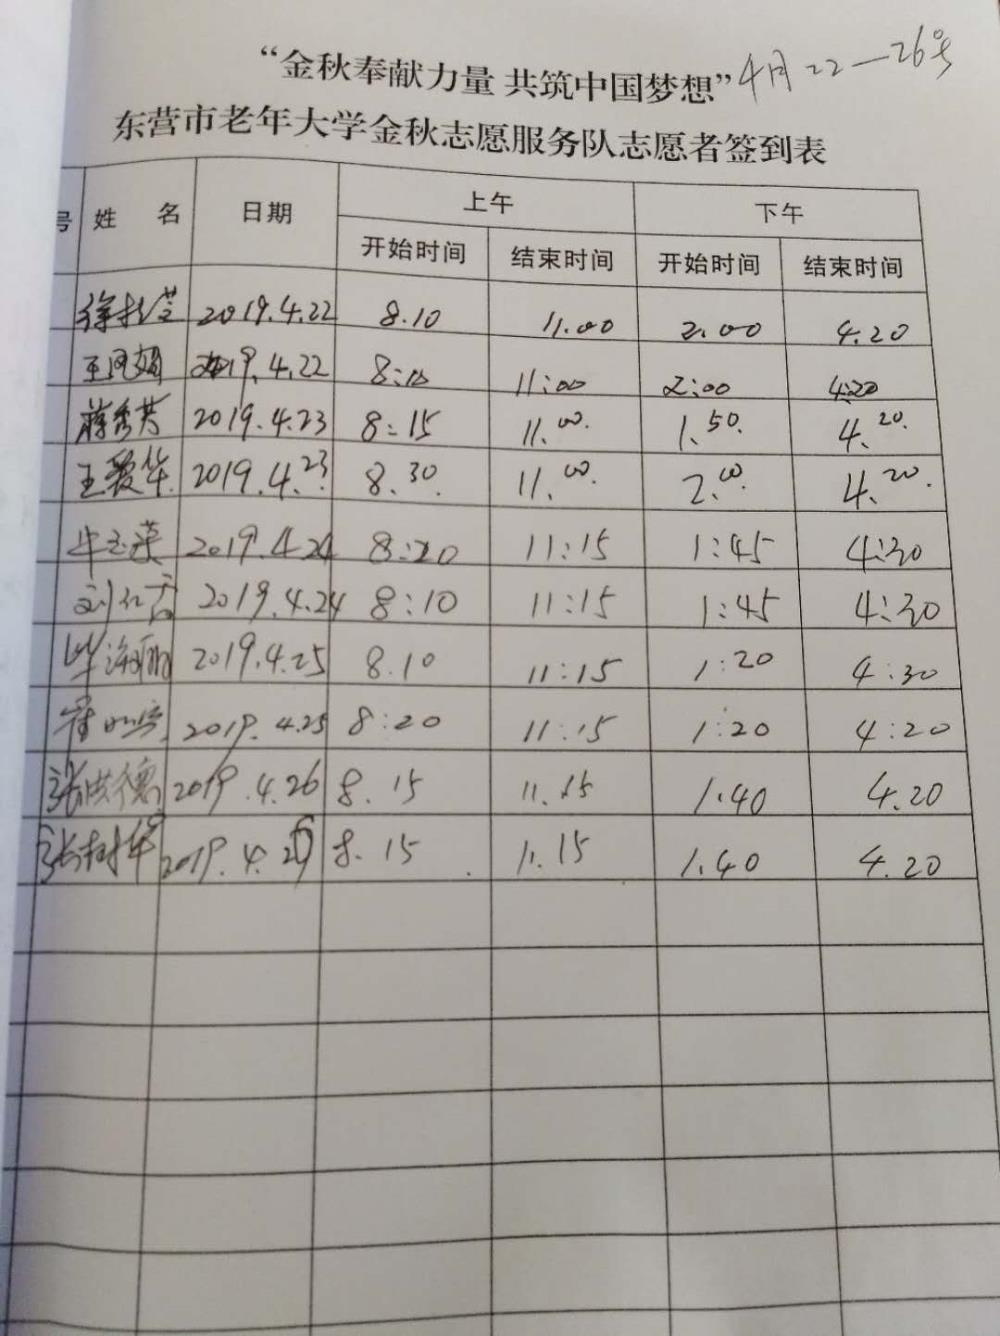 “金秋奉献力量 共筑中国梦想” 4月22—26号
东营市老年大学金秋志愿服务队志愿者签到表
号 姓 名 日期 上午 下午
开始时间 结束时间 开始时间 结束时间
2019.4.22 8.10 11.00 2.00 4.20
2019.4.22 8:10 11:00 2:00 4:20
蒋秀英 2019.4.23 8:15 11.00. 1.50. 4.20.
王爱华 2019.4.23 8.30 11.00. 2.00. 4.20.
牛玉荣 2019.4.24 8:20 11:15 1:45 4:30
刘仁香 2019.4.24 8:10 11:15 1:45 4:30
毕海丽 2019.4.25 8.10 11:15 1:20 4:30
崔 2019.4.25 8:20 11:15 1:20 4:20
张洪德 2019.4.26 8.15 11.15 1.40 4.20
张树华 2019.4.26 8.15 11.15 1.40 4.20